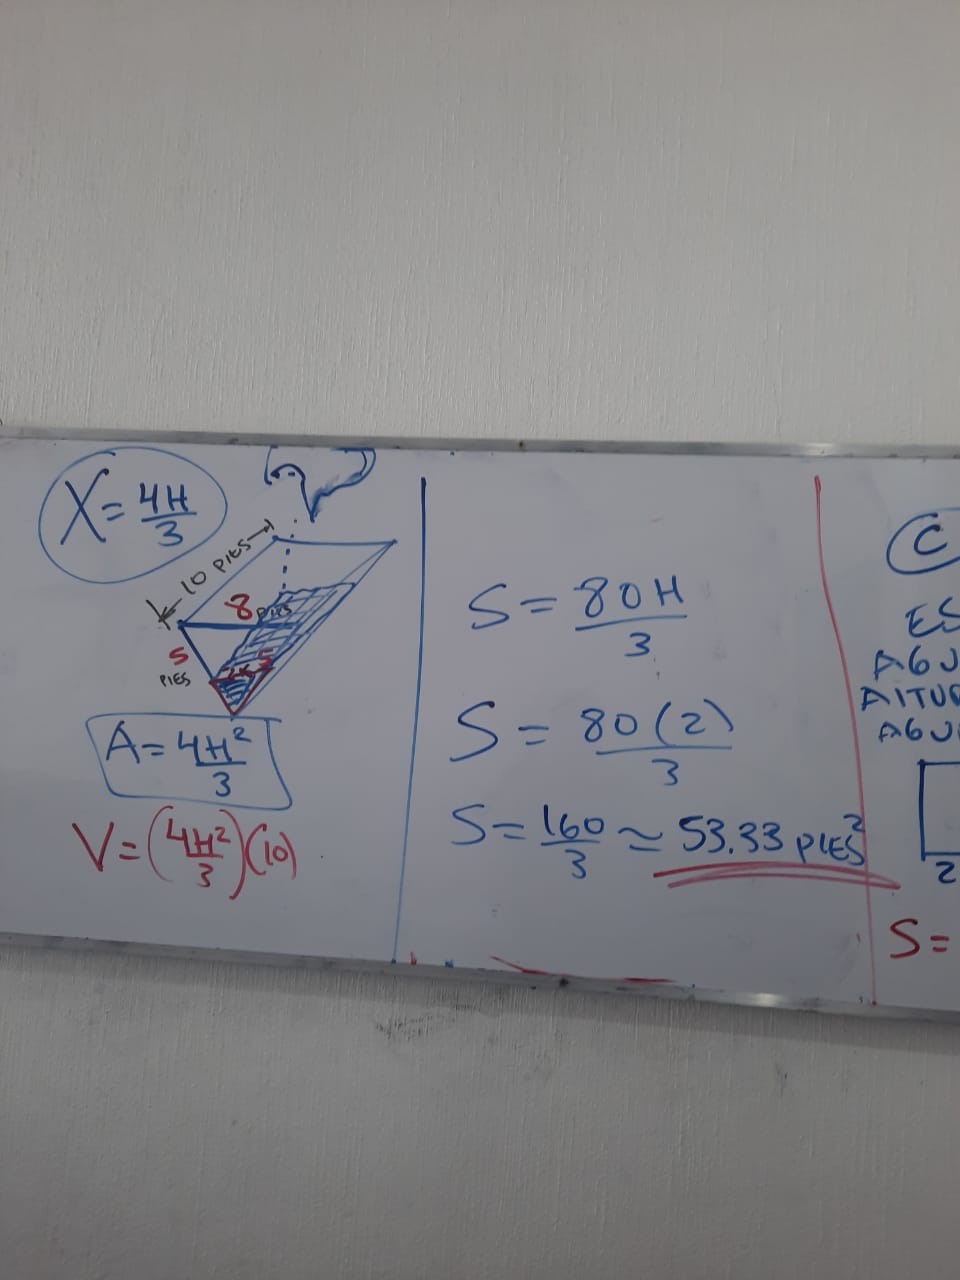 X = 4H/3
10 PIES
8 PIES
5
PIES
A = 4H²/3
V = (4H²/3)(10)
S = 80H/3
S = 80(2)/3
S = 160/3 ≃ 53.33 PIES²
C
ES
AGU
AGU
2
S =